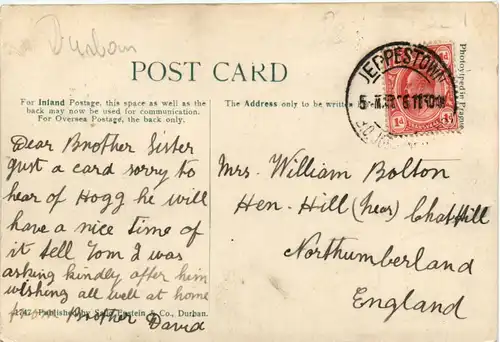 Durban
POST CARD
For Inland Postage, this space as well as the
back may now be used for communication.
For Oversea Postage, the back only.
The Address only to be written
JEPPESTOWN
1d
Dear Brother Sister
Just a card sorry to
hear of Hogg he will
have a nice time of
it tell Tom I was
asking kindly after him
wishing all well at home
from Brother David
Published by Sallo Epstein & Co., Durban.
Mrs. William Bolton
Hen-Hill (near) Chat Hill
Northumberland
England